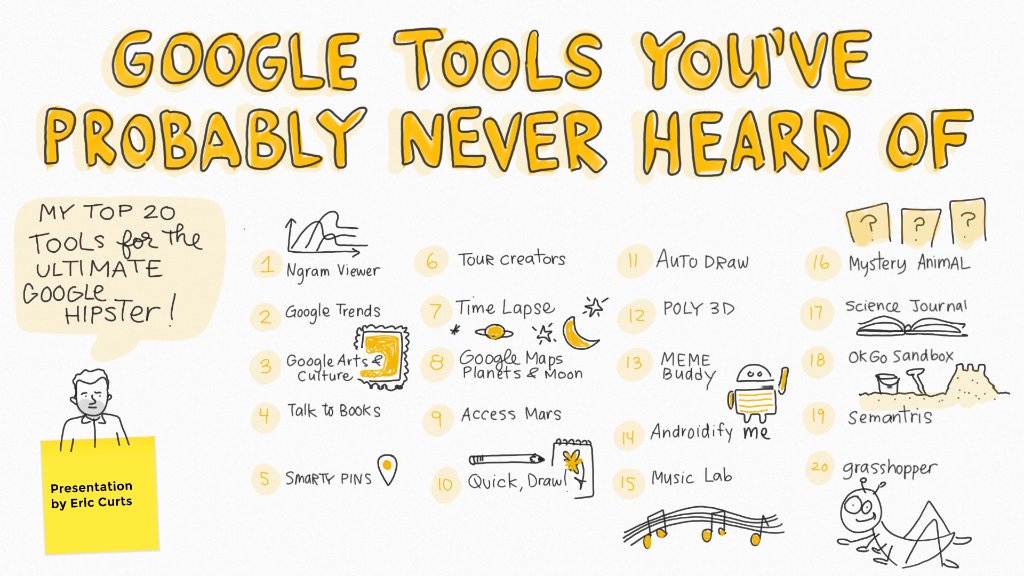 GOOGLE TOOLS YOU'VE
PROBABLY NEVER HEARD OF
MY TOP 20
TOOLS for the
ULTIMATE
GOOGLE
HIPSTER!
Presentation
by Eric Curts
1 Ngram Viewer
2 Google Trends
3 Google Arts &
Culture
4 Talk to Books
5 SMARTY PINS
6 Tour Creators
7 Time Lapse
8 Google Maps
Planets & Moon
9 Access Mars
10 Quick, Draw!
11 Auto Draw
12 POLY 3D
13 MEME
Buddy
14 Androidify me
15 Music Lab
? ? ?
16 Mystery AnimAL
17 Science Journal
18 OKGO Sandbox
19 Semantris
20 grasshopper